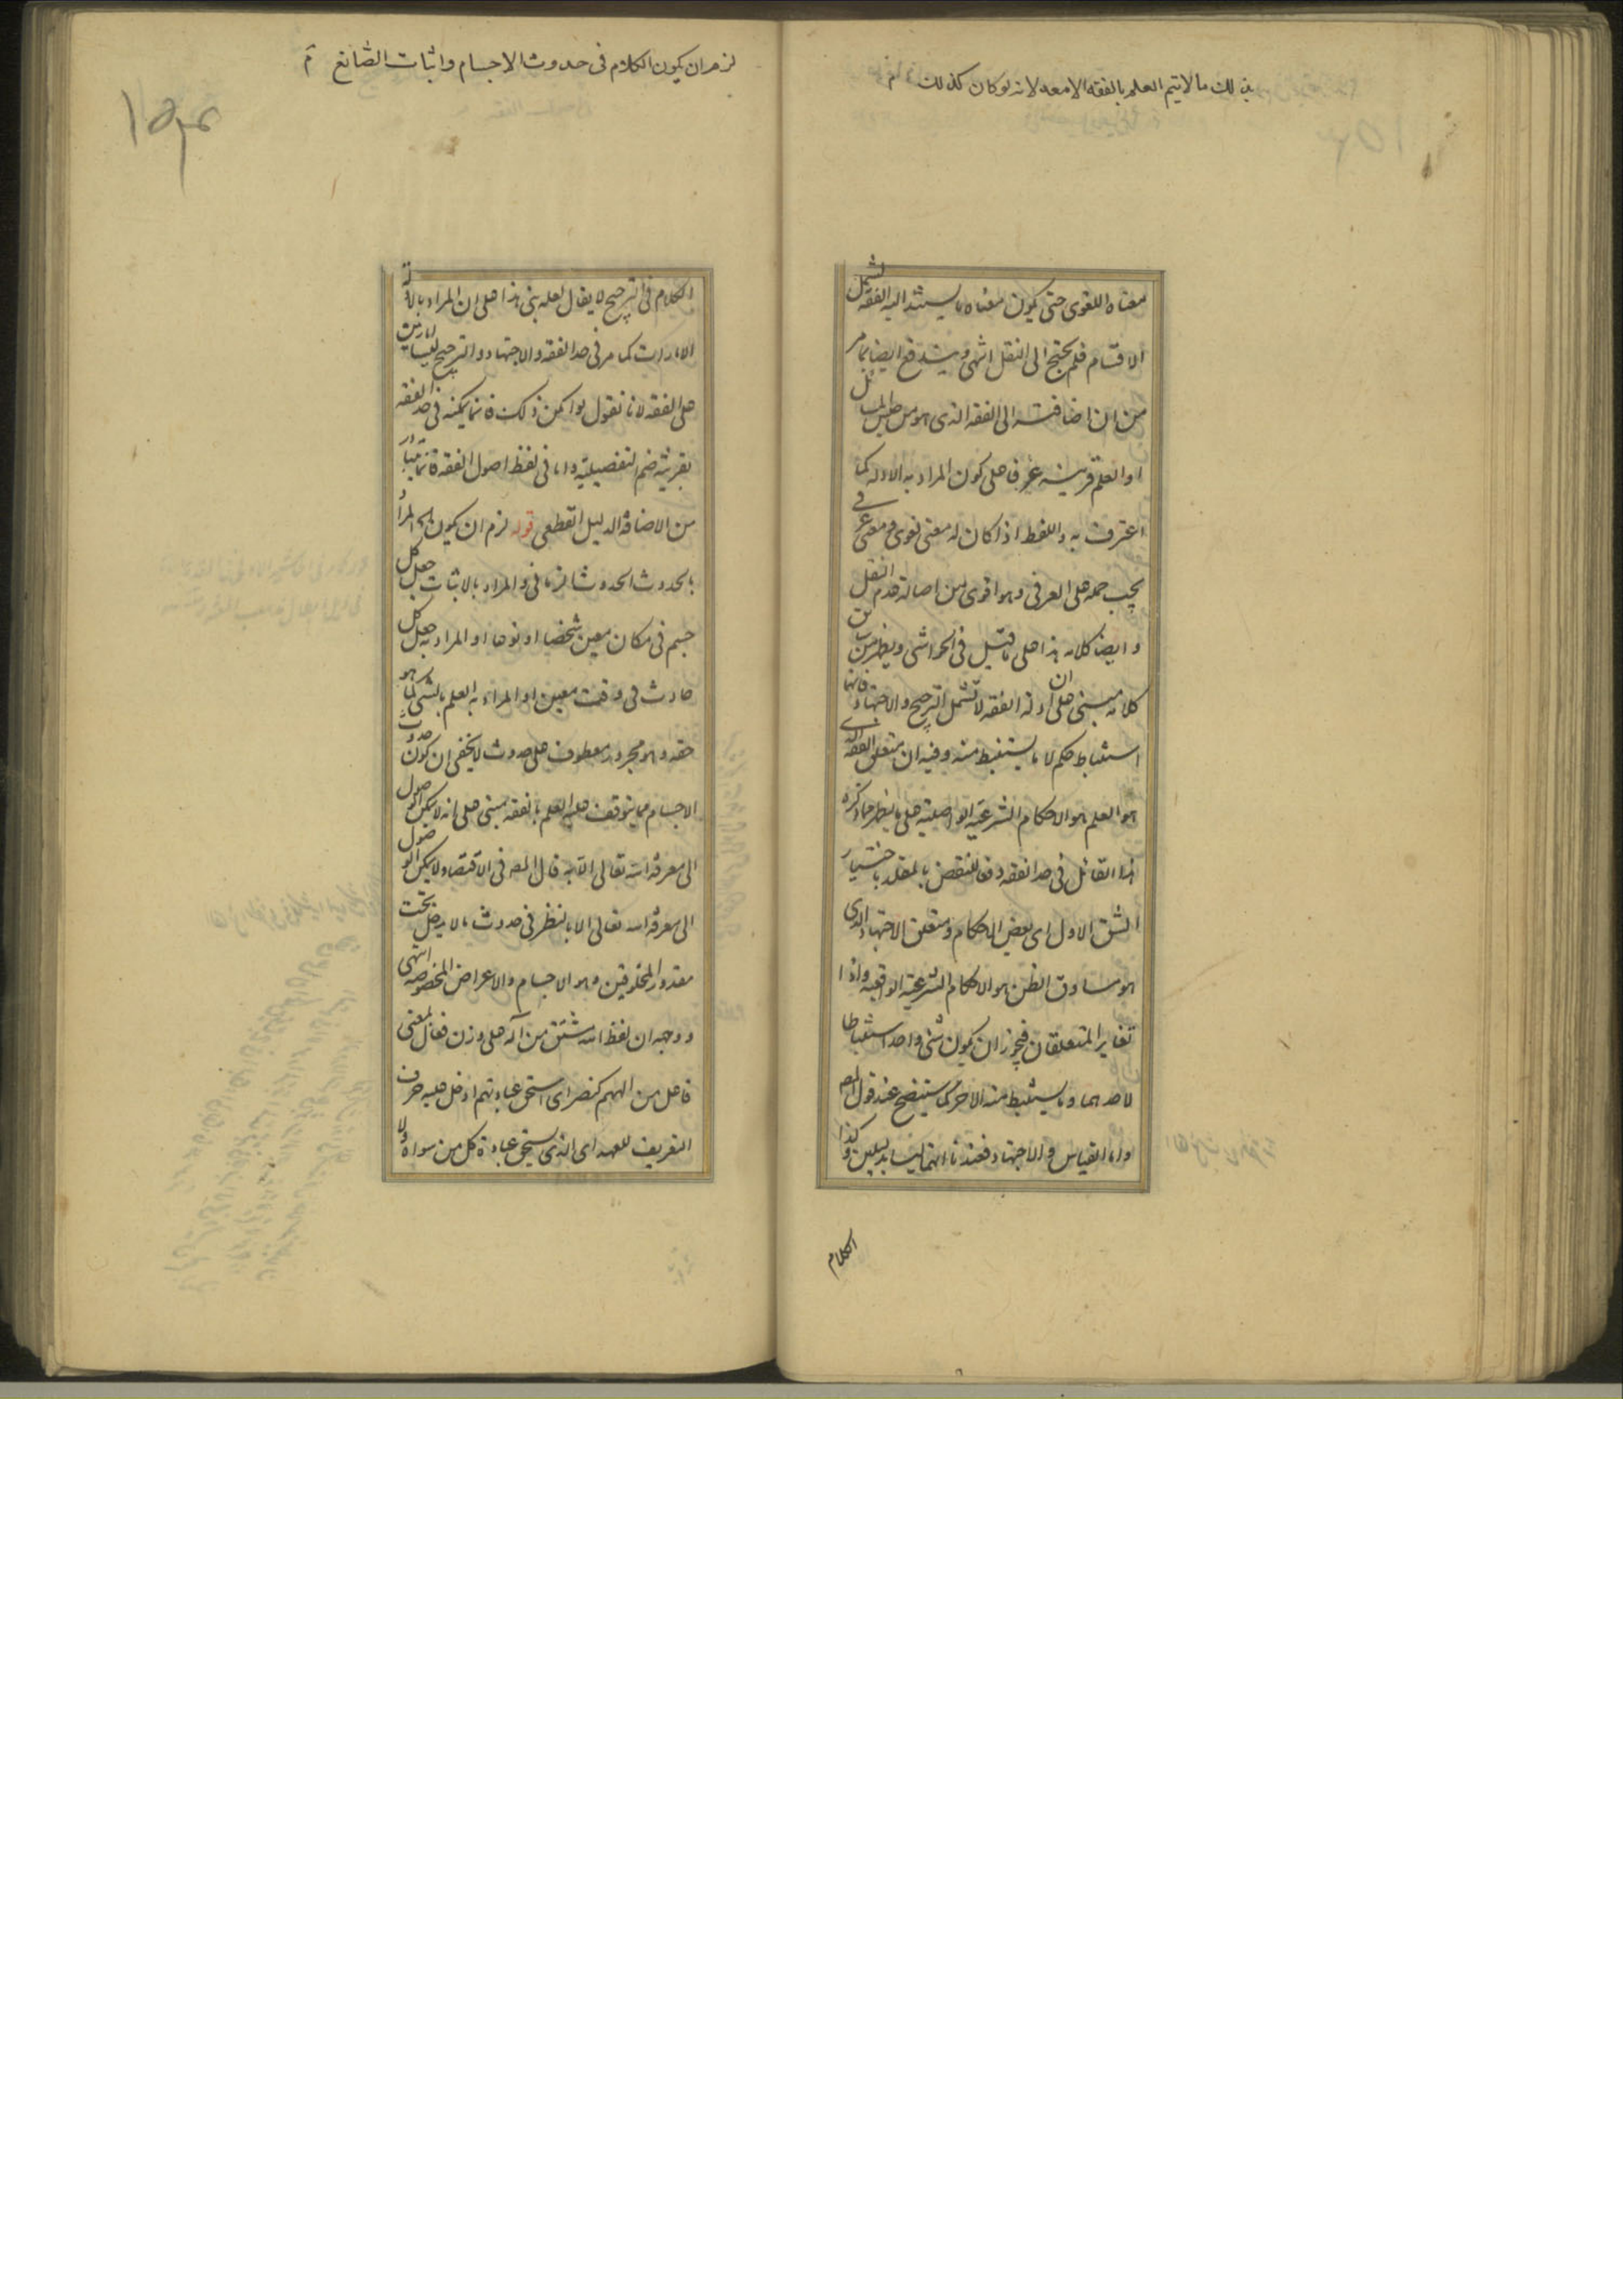 بذلك ما لا يتم العلم بالفقه الا معه لانه لو كان كذلك
معناه اللغوى حتى يكون معناه ما يستند اليه الفقه لتشمل
الاقسام فلم يحتج الى النقل انتهى ويندفع ايضا بما مر
من ان اضافته الى الفقه الذى هو من المسائل
او العلم قرينة على كون المراد به الادلة كما
اعترف به واللفظ اذا كان له معنى لغوى ومعنى عرفى
يجب حمله على العرفى وهو اقوى من اصالة عدم النقل
وايضا كلامه هذا على ما قيل فى الحواشى ويظهر من
كلامه مبنى على ان ادلة الفقه لا تشمل الترجيح والاجتهاد فانها
استنباط حكم لا ما يستنبط منه وفيه ان متعلق الفقه الذى
هو العلم هو الاحكام الشرعية الواصلية على ما يظهر مما ذكره
هذا القائل فى حد الفقه دفعا للنقض بالمقلد باختيار
الشق الاول اى بعض الاحكام ومتعلق الاجتهاد الذى
هو مساوق الظن هو الاحكام الشرعية الواقعية واذا
تغاير المتعلقان فيجوز ان يكون شئ واحد استنباطا
لاحدهما وما يستنبط منه الاخر كما سيتضح عند قول المص
واما القياس والاجتهاد فعندنا انهما ليسا بدليلين وكذا
الكلام
لزم ان يكون الكلام فى حدوث الاجسام واثبات الصانع
الكلام فى الترجيح لا يقال لعله بنى هذا على ان المراد بالادلة
الامارات كما مر فى حد الفقه والاجتهاد والترجيح ليسا امارتين
على الفقه لانا نقول لو امكن ذلك فانما يمكنه فى حد الفقه
بقرينة ضم التفصيلية واما فى لفظ اصول الفقه فانما يتبادر
من الاضافة الدليل القطعى قوله لزم ان يكون الخ المراد
بالحدوث الحدوث الزمانى والمراد بالاثبات جعل كل
جسم فى مكان معين شخصا او نوعا او المراد به جعل كل
حادث فى وقت معين او المراد به العلم بالشئ كما هو
حقه وهو مجرور معطوف على حدوث لا يخفى ان كون حدوث
الاجسام مما يتوقف عليه العلم بالفقه مبنى على انه لا يمكن الوصول
الى معرفة الله تعالى الا به قال المص فى الاقتصاد لا يمكن الوصول
الى معرفة الله تعالى الا بالنظر فى حدوث ما لا يدخل تحت
مقدور المخلوقين وهو الاجسام والاعراض المخصوصة انتهى
ووجهه ان لفظ الله مشتق من اله على وزن فعال بمعنى
فاعل من الههم كنصر اى استحق عبادتهم ادخل عليه حرف
التعريف للعهد اى الذى يستحق عبادة كل من سواه ولا